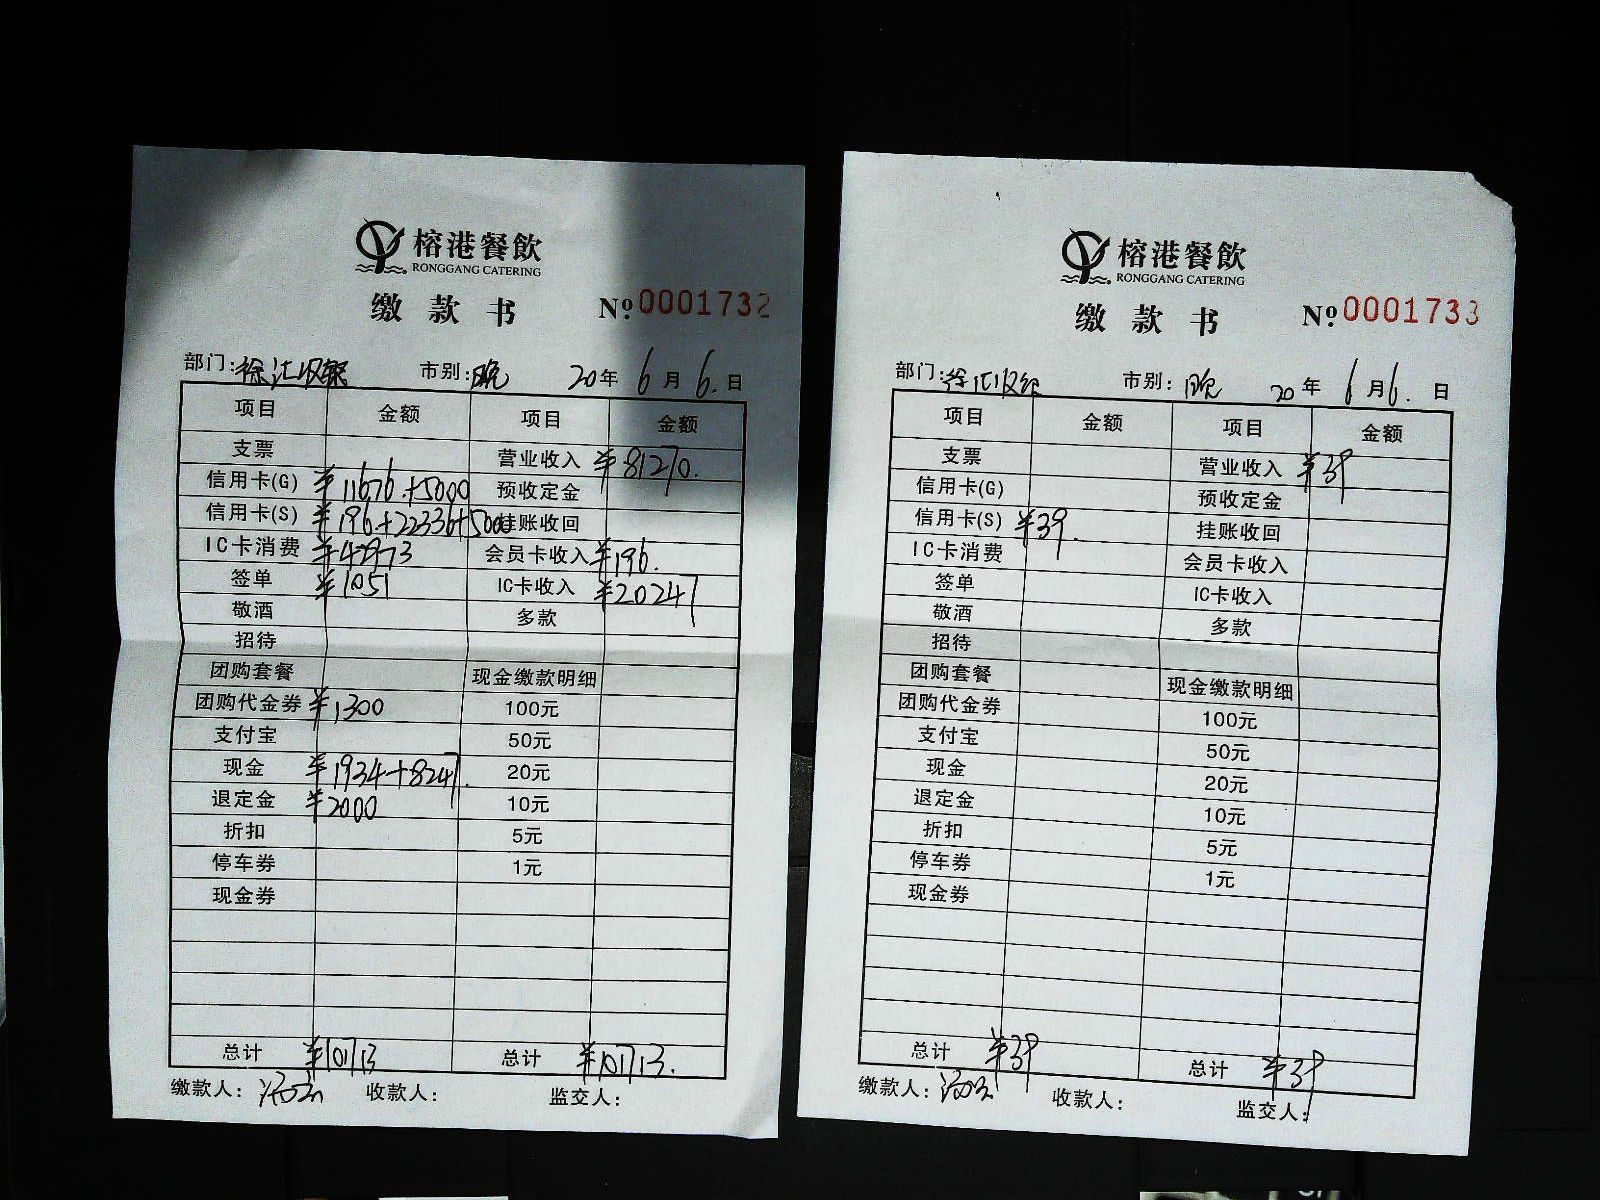 榕港餐飲
RONGGANG CATERING
缴款书 No 0001732
部门:徐汇收银 市别:晚 20年6月6.日
项目 金额 项目 金额
支票 营业收入 ¥81270.
信用卡(G) ¥11676.+5000 预收定金
信用卡(S) ¥196.+22336+5000 挂账收回
IC卡消费 ¥42973 会员卡收入 ¥196.
签单 ¥1051 IC卡收入 ¥20247
敬酒 多款
招待
团购套餐 现金缴款明细
团购代金券 ¥1300 100元
支付宝 50元
现金 ¥1934+8247. 20元
退定金 ¥2000 10元
折扣 5元
停车券 1元
现金券
总计 ¥101713 总计 ¥101713.
缴款人: 收款人: 监交人:
榕港餐飲
RONGGANG CATERING
缴款书 No 0001733
部门:徐汇收银 市别:晚 20年6月6.日
项目 金额 项目 金额
支票 营业收入 ¥39
信用卡(G) 预收定金
信用卡(S) ¥39. 挂账收回
IC卡消费 会员卡收入
签单 IC卡收入
敬酒 多款
招待
团购套餐 现金缴款明细
团购代金券 100元
支付宝 50元
现金 20元
退定金 10元
折扣 5元
停车券 1元
现金券
总计 ¥39 总计 ¥39
缴款人: 收款人: 监交人: